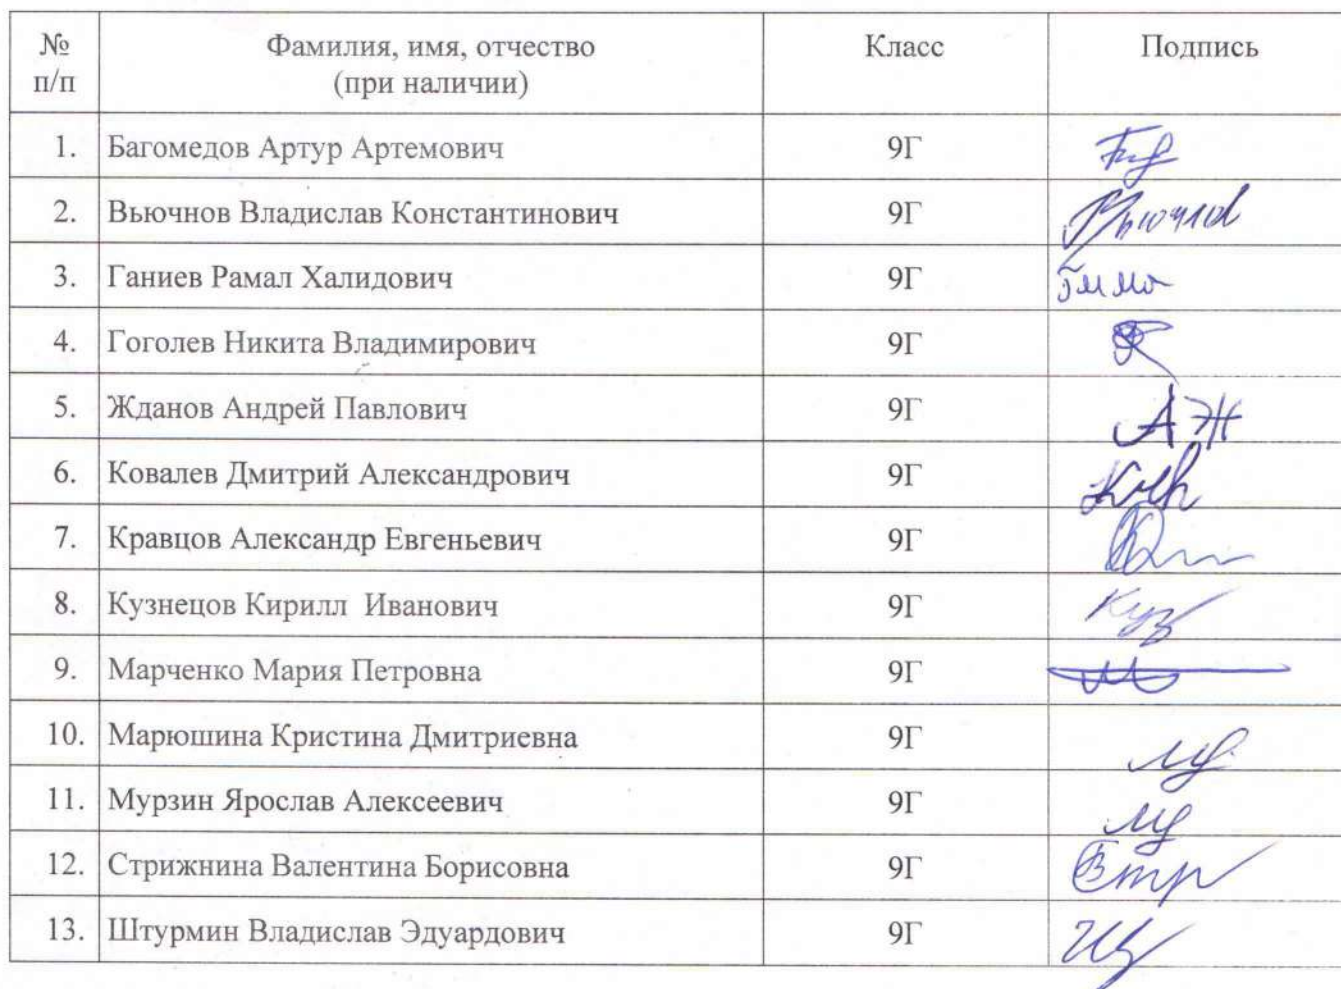 № п/п Фамилия, имя, отчество (при наличии) Класс Подпись
1. Багомедов Артур Артемович 9Г
2. Вьючнов Владислав Константинович 9Г
3. Ганиев Рамал Халидович 9Г
4. Гоголев Никита Владимирович 9Г
5. Жданов Андрей Павлович 9Г АЖ
6. Ковалев Дмитрий Александрович 9Г
7. Кравцов Александр Евгеньевич 9Г
8. Кузнецов Кирилл Иванович 9Г Куз
9. Марченко Мария Петровна 9Г
10. Марюшина Кристина Дмитриевна 9Г
11. Мурзин Ярослав Алексеевич 9Г
12. Стрижнина Валентина Борисовна 9Г
13. Штурмин Владислав Эдуардович 9Г